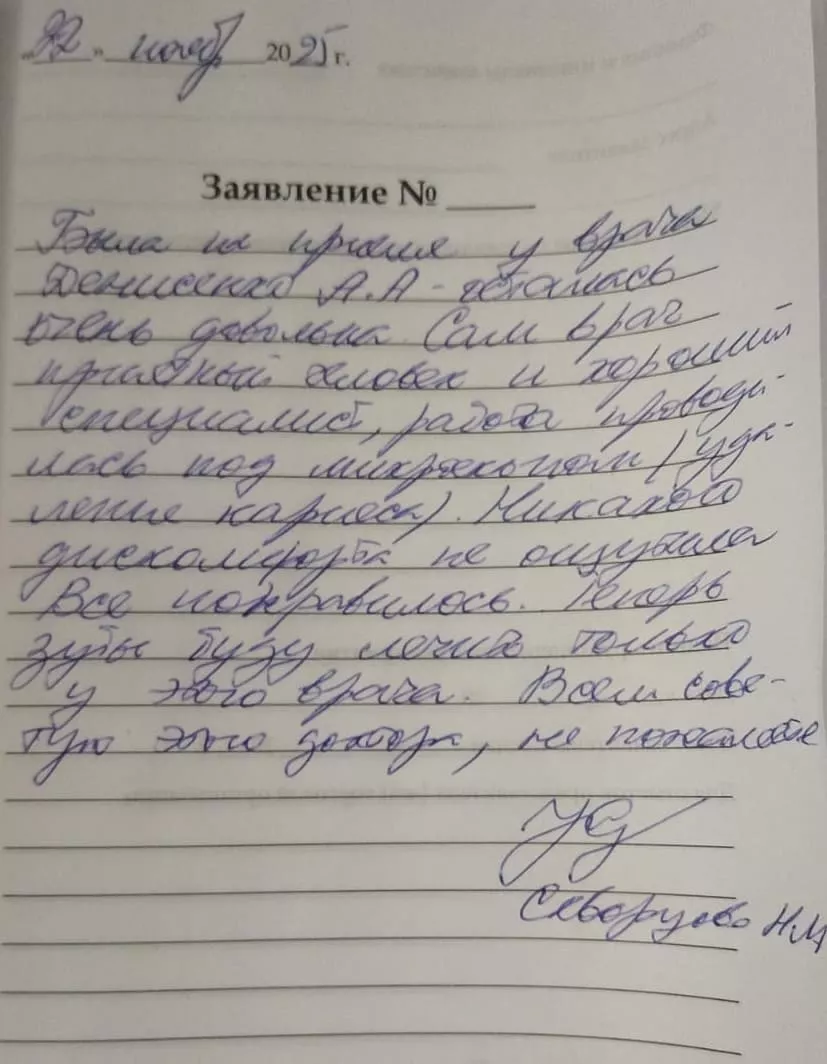 „22" нояб 2025 г.
Заявление № ____
Была на приеме у врача
Денисенко А.А - осталась
очень довольна. Сам врач
приятный человек и хороший
специалист, работа проводи-
лась под микроскопом (уда-
ление кариеса). Никакого
дискомфорта не ощутила
Все понравилось. Теперь
зубы буду лечить только
у этого врача. Всем сове-
тую этого доктора, не пожалеете
Скворцова Н.М